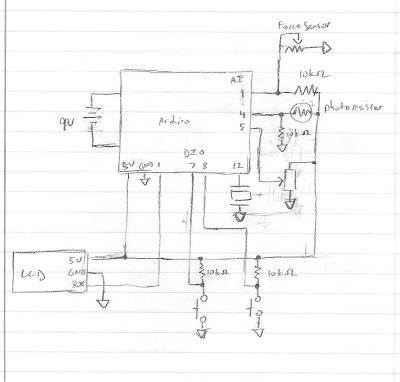 Force Sensor
AI
10kΩ
1
photoresistor
4
9V
Arduino
5
10kΩ
DIO
5V GND 1 7 8 12
5V
LCD
GND
10kΩ
10kΩ
RX